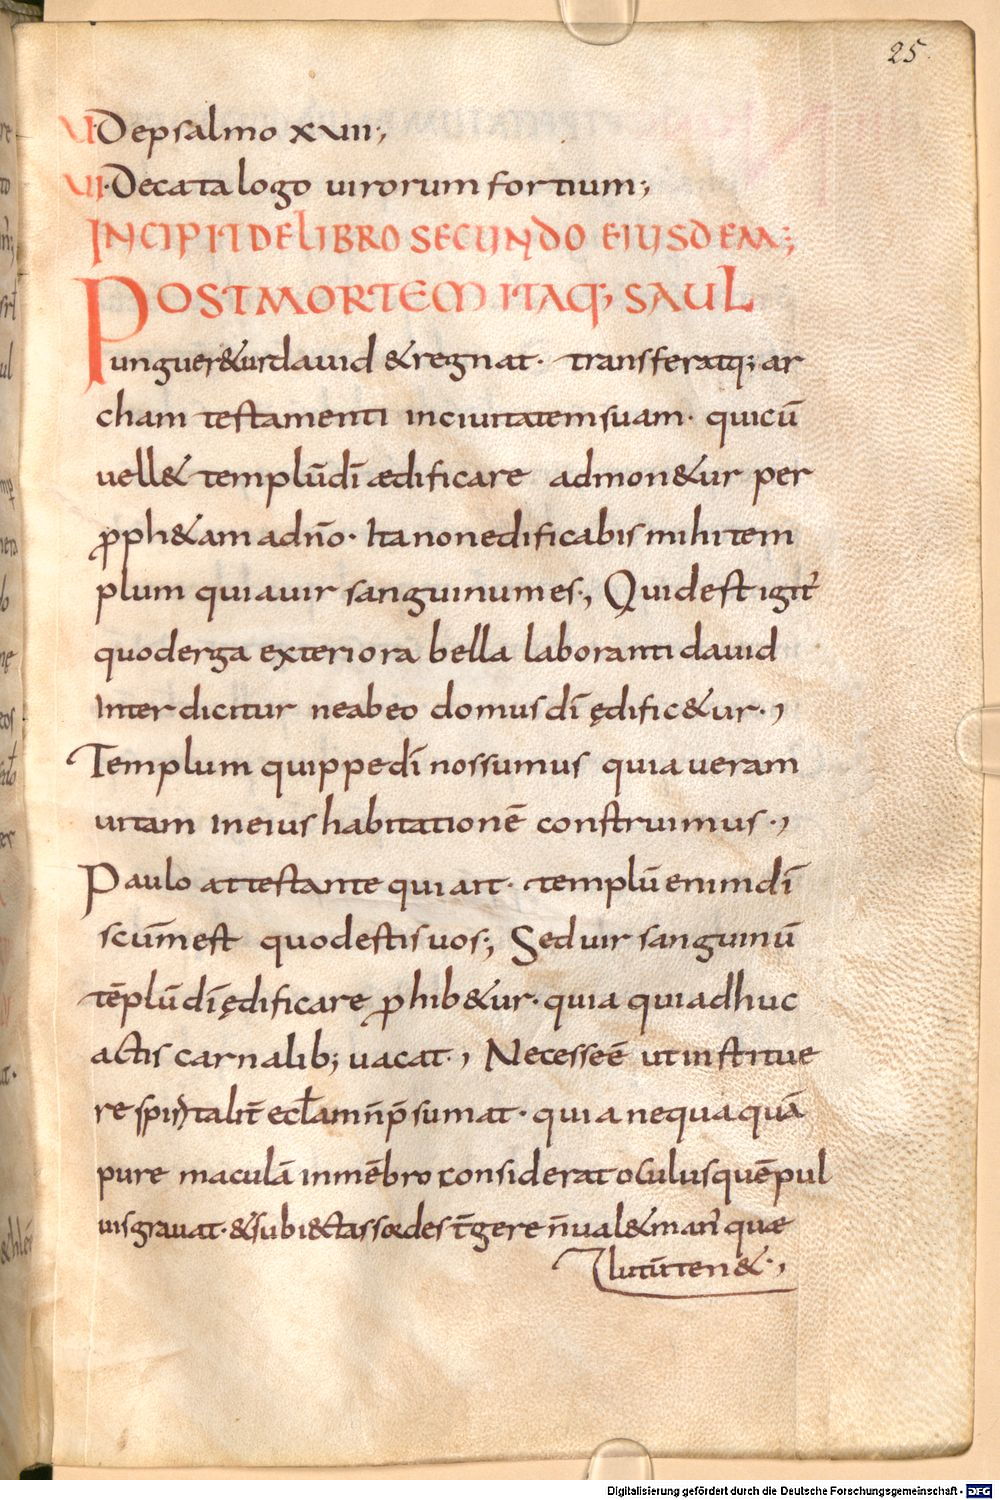 25.
V·De psalmo xviii;
VI·De catalogo virorum fortium;
INCIPIT DE LIBRO SECUNDO EIUSDEM;
POST MORTEM ITAQ; SAUL
unguer&ur david & regnat· transferatq; ar
cham testamenti in civitatem suam· qui cū
vell& templū dī ædificare admon&ur per
ꝓph&am ad n̄o· Ita non edificabis mihi tem
plum quia vir sanguinum es·, Quid est igit᷑
quod erga exteriora bella laboranti david
Interdicitur ne ab eo domus dī ędific&ur·,
Templum quippe dī nos sumus quia veram
vitam in eius habitationē construimus·,
Paulo attestante qui ait· templū enim dī
scūm est quod estis vos;, Sed vir sanguinū
tēplū dī ędificare ꝓhib&ur· quia qui adhuc
actis carnalib; vacat·, Necesse ē ut instrue
re spiritalit̄ ecl̄am n̄ p̄sumat· quia nequaquā
pure maculā in mēbro considerat oculus quē pul
vis gravat· & subiectas sordes t̄gere n̄ val& man᷑ quæ
lutū ten&·,
Digitalisierung gefördert durch die Deutsche Forschungsgemeinschaft - DFG